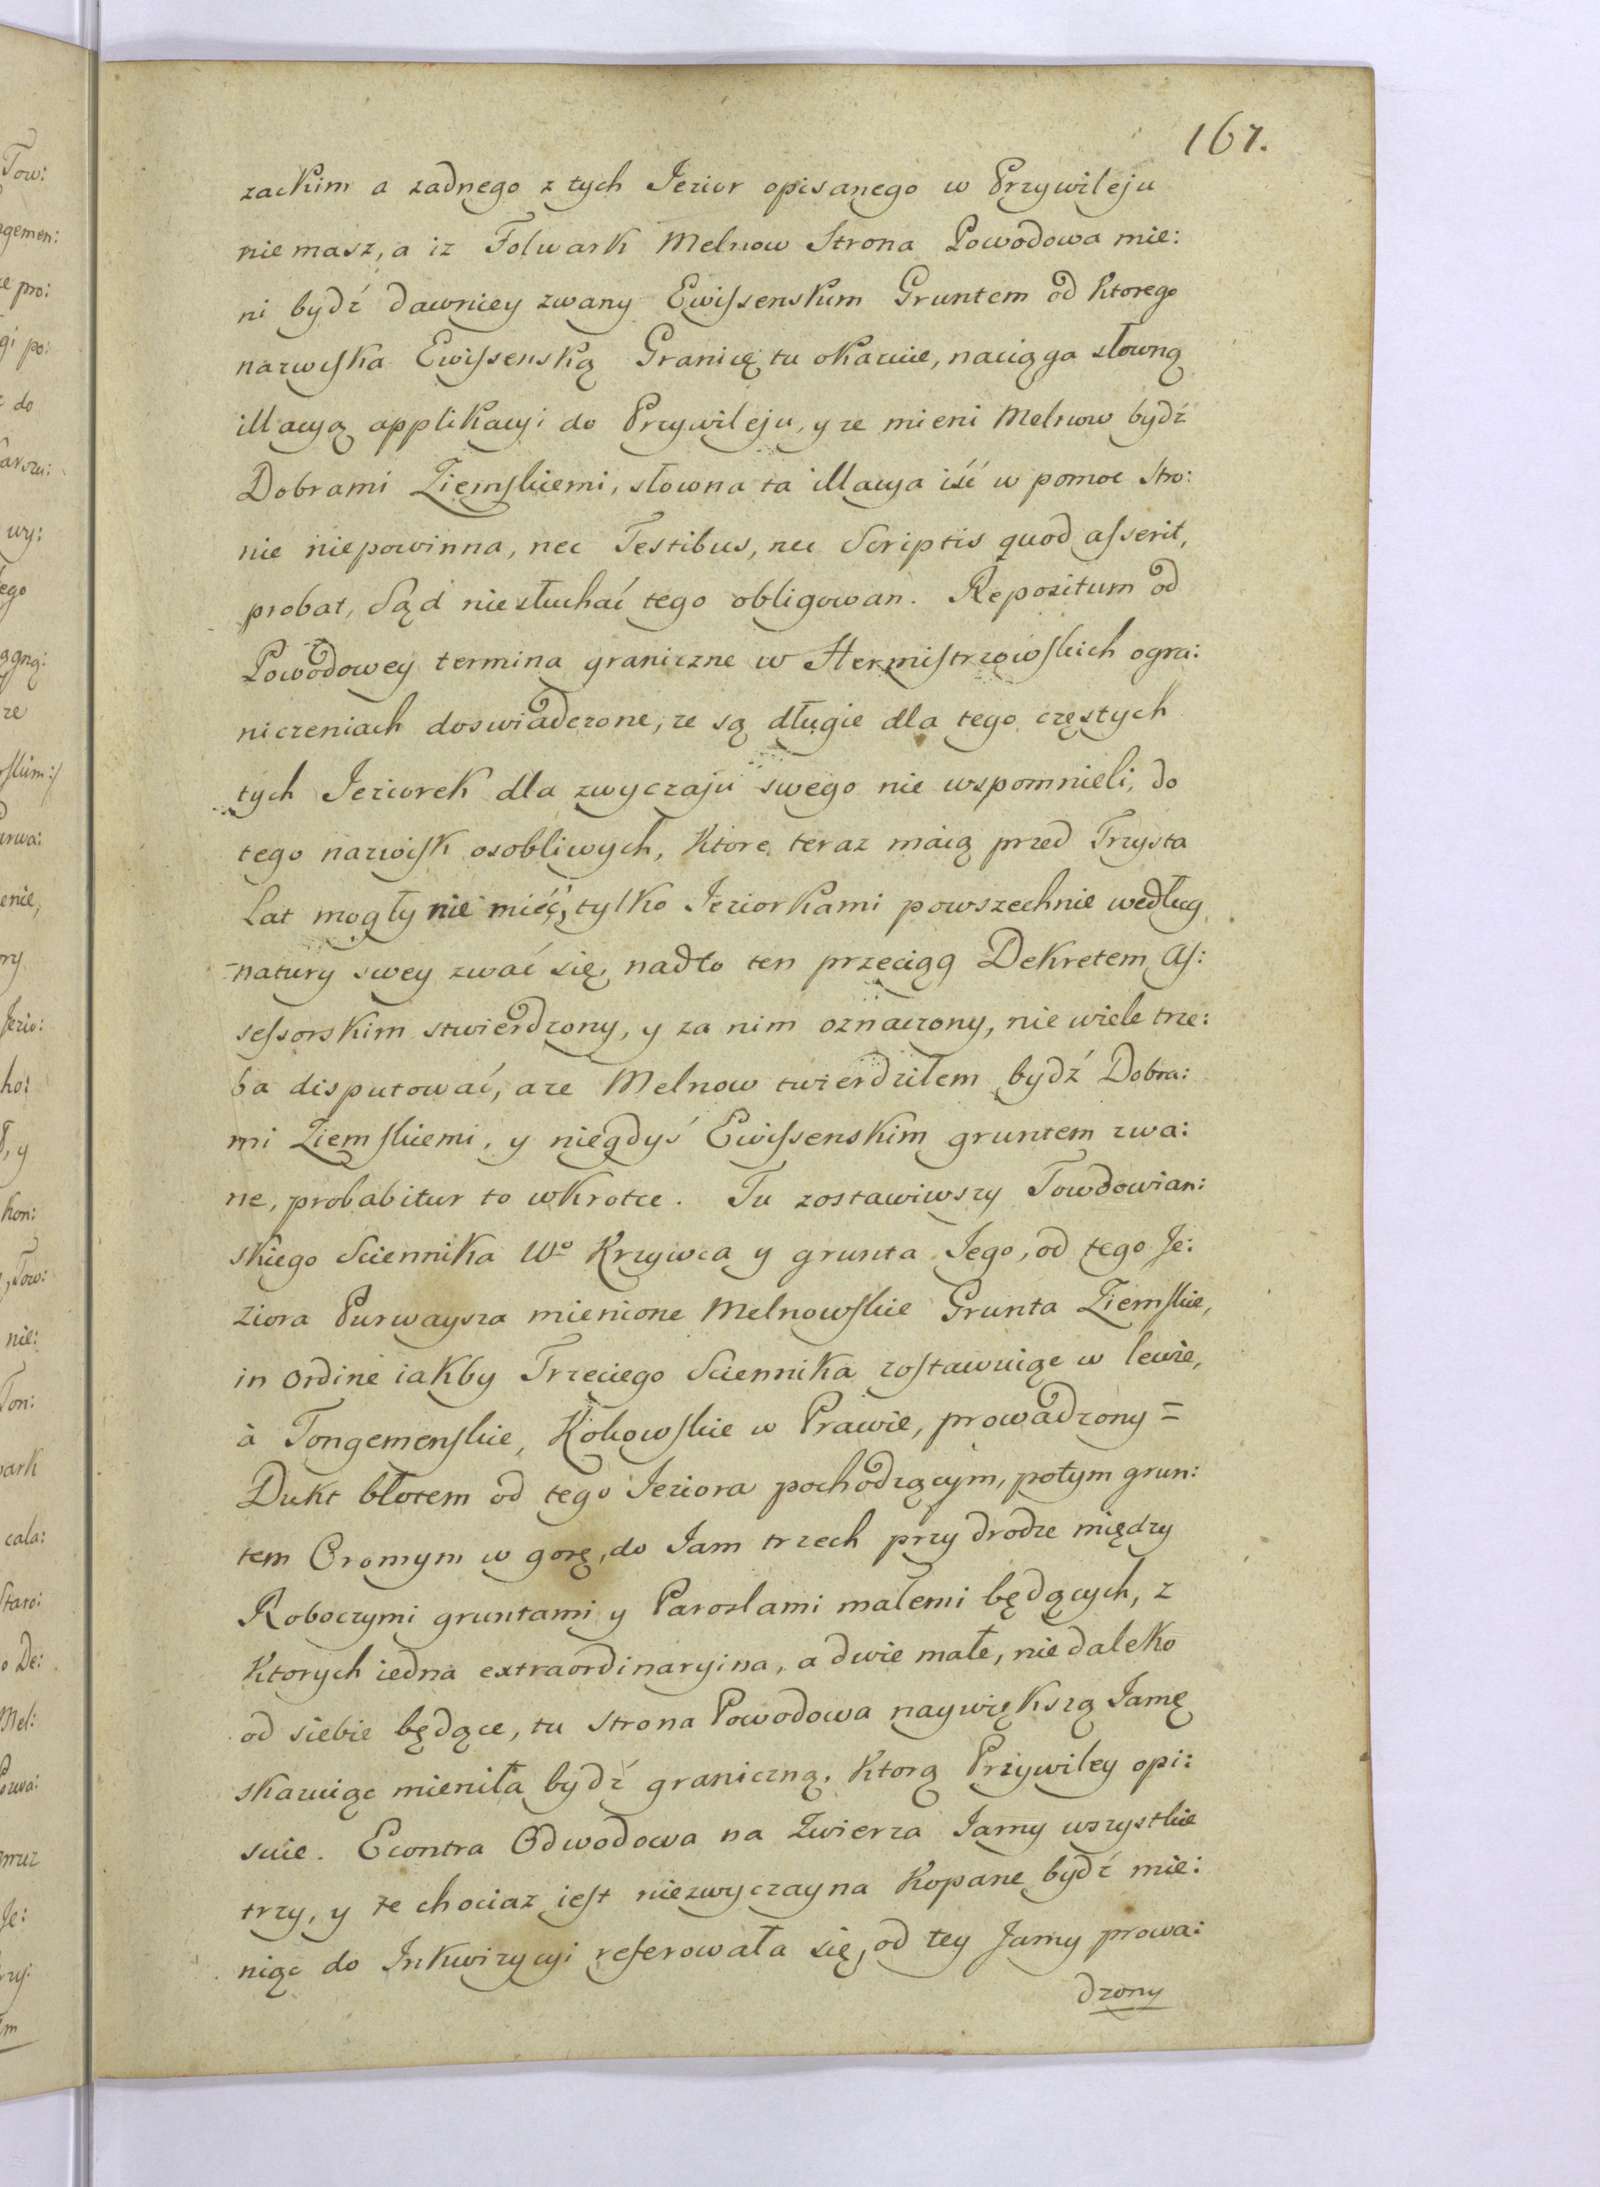 167.
zackim a zadnego z tych Jezior opisanego w Przywileju
nie masz, a iz Folwark Melnow Strona Powodowa mie:
ni bydź dawniey zwany Ewissenskim Gruntem od ktorego
nazwiska Ewissenską Granicę tu okazuie, naciąga słowną
illacyą applikacyi do Przywileju, y ze mieni Melnow bydź
Dobrami Ziemskiemi, słowna ta illacya iść w pomoc stro:
nie niepowinna, nec Testibus, nec Scriptis quod asserit,
probat, Sąd niesłuchać tego obligowan. Repositum od
Powodowey termina graniczne w Hermistrzowskich ogra:
niczeniach doswiadczone, ze są długie dla tego częstych
tych Jeziorek dla zwyczaju swego nie wspomnieli, do
tego nazwisk osobliwych, ktore teraz maią przed Trzysta
Lat mogły nie mieć, tylko Jeziorkami powszechnie według
natury swey zwać się, nadto ten przeciąg Dekretem As:
sessorskim stwierdzony, y za nim oznaczony, nie wiele trze:
ba disputować, aze Melnow twierdziłem bydź Dobra:
mi Ziemskiemi, y niegdyś Ewissenskim gruntem zwa:
ne, probabitur to wkrotce. Tu zostawiwszy Towdowian:
skiego Sciennika Wo Krzywca y grunta Jego, od tego Je:
ziora Purwaysza mienione Melnowskie Grunta Ziemskie,
in ordine iakby Trzeciego Sciennika zostawuiąc w lewie,
à Tongemenskie, Kokowskie w Prawie, prowadzony =
Dukt błotem od tego Jeziora pochodzącym, potym grun:
tem Oromym w gorę, do Jam trzech przy drodze między
Roboczymi gruntami y Parozlami małemi będących, z
ktorych iedna extraordinaryina, a dwie małe, niedaleko
od siebie będące, tu strona Powodowa naywiększą Jamę
skazuiąc mieniła bydź graniczną, ktorą Przywiley opi:
suie. Econtra Odwodowa na Zwierza Jamy wszystkie
trzy, y te chociaz iest niezwyczayna kopane bydź mie:
niąc do Inkwizycyi referowała się, od tey Jamy prowa:
dzony